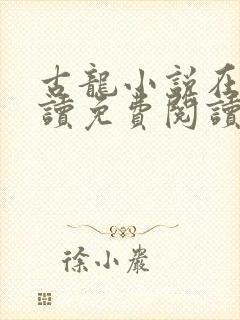 古龍小說在
讀免費閱讀
徐小嚴